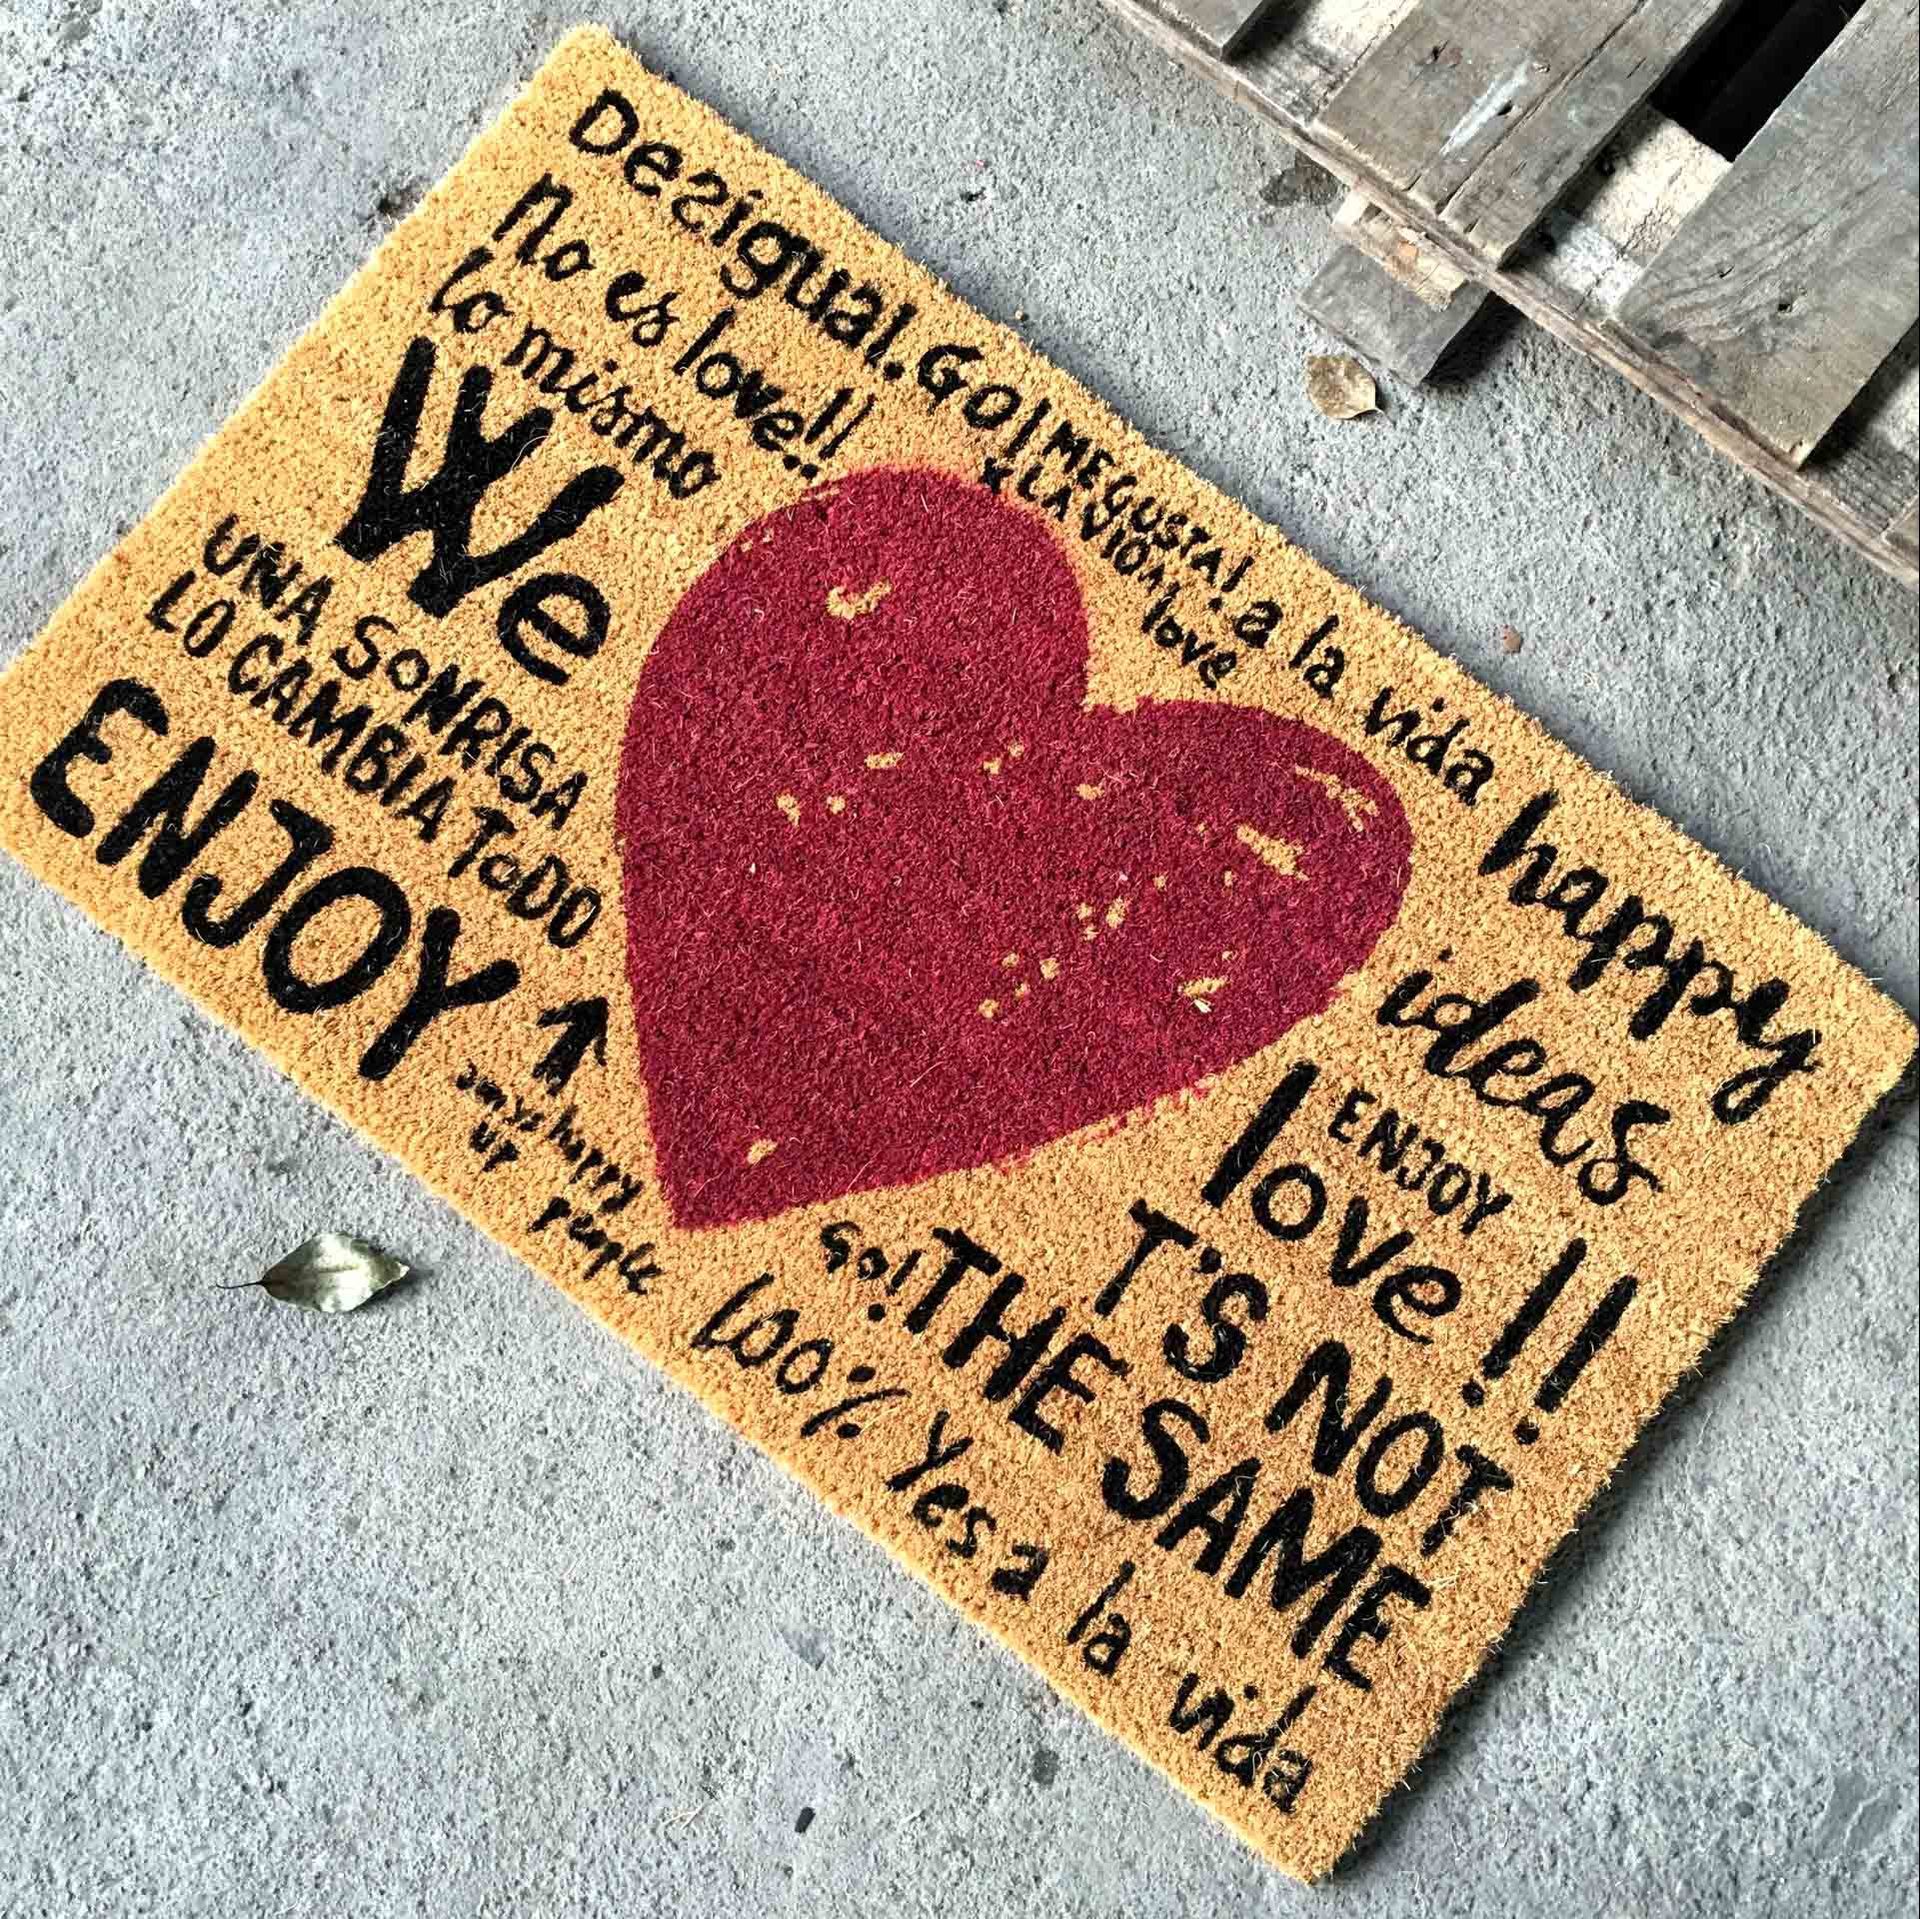 Desigual. GO! ME GUSTA! a la vida happy
no es love!! X LA
lo mismo love
We
UNA SONRISA
LO CAMBIA TODO
ENJOY
ideas
ENJOY
love!!
T'S NOT
GO! THE SAME
happy
UP people
100% Yes a la vida